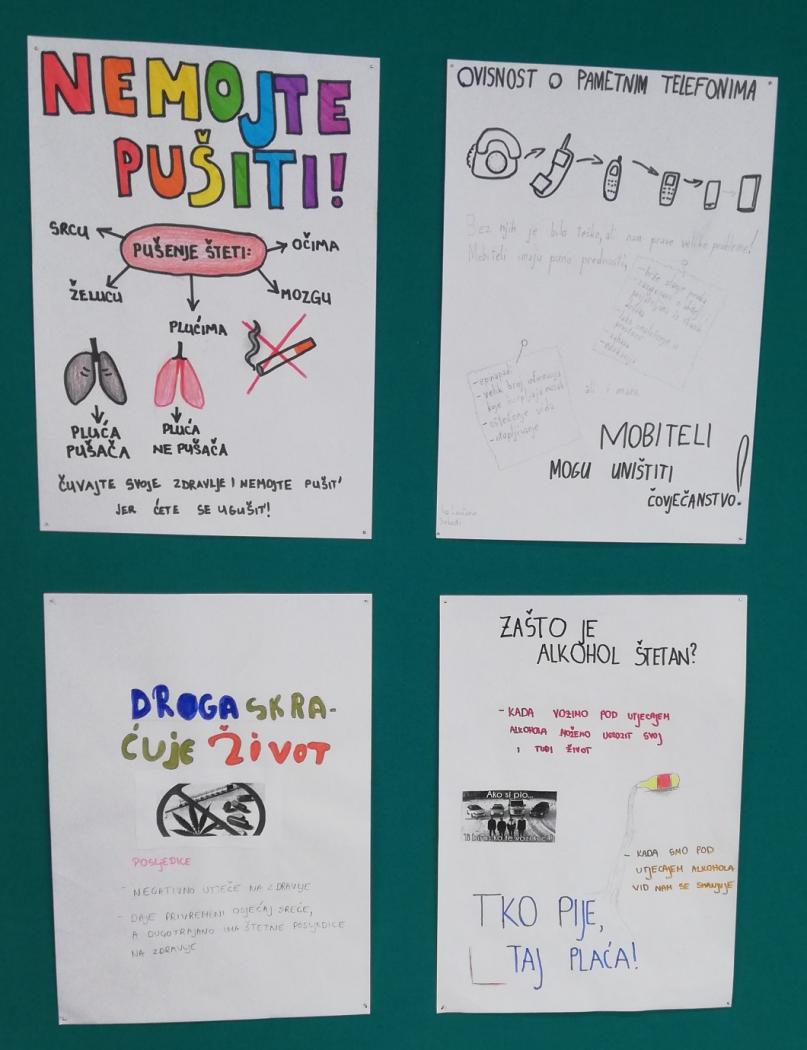 NEMOJTE
PUŠITI!
SRCU
PUŠENJE ŠTETI:
OČIMA
ŽELUCU
MOZGU
PLUĆIMA
PLUĆA
PUŠAČA
PLUĆA
NE PUŠAČA
ČUVAJTE SVOJE ZDRAVLJE I NEMOJTE PUŠIT'
JER ĆETE SE UGUŠIT'!
OVISNOST O PAMETNIM TELEFONIMA
Bez njih je bilo teško, ali nam prave velike probleme!
Mobiteli imaju puno prednosti,
- zabava
- edukacija
ali i mana
- velik broj informacija
- oštećenje vida
MOBITELI
MOGU UNIŠTITI
ČOVJEČANSTVO!
DROGA SKRA-
ĆUJE ŽIVOT
POSLJEDICE
- NEGATIVNO UTJEČE NA ZDRAVLJE
- DAJE PRIVREMENI OSJEĆAJ SREĆE,
A DUGOTRAJNO IMA ŠTETNE POSLJEDICE
NA ZDRAVLJE
ZAŠTO JE
ALKOHOL ŠTETAN?
- KADA VOZIMO POD UTJECAJEM
ALKOHOLA MOŽEMO UGROZIT SVOJ
I TUĐI ŽIVOT
Ako si pio...
- KADA SMO POD
UTJECAJEM ALKOHOLA
VID NAM SE SMANJUJE
TKO PIJE,
TAJ PLAĆA!